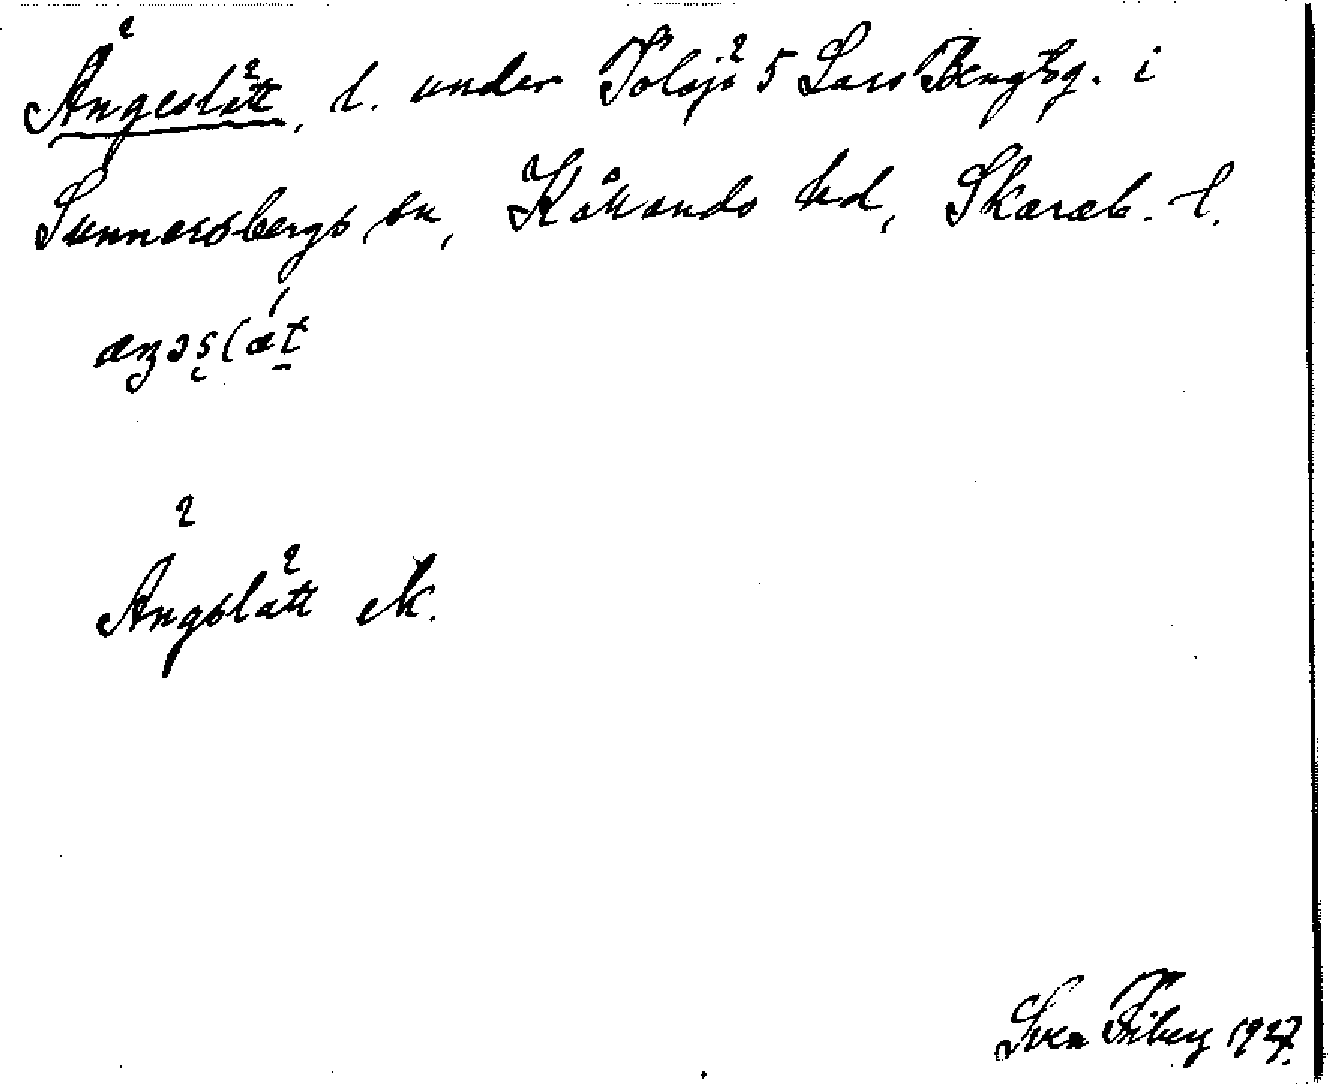 Ängeslätt, l. under Tolsjö 5 Lars Bengtsg. i
Sunnersbergs sn, Kållands hd, Skarab. l.
Ängslätt ek.
Sven Friberg 1927.